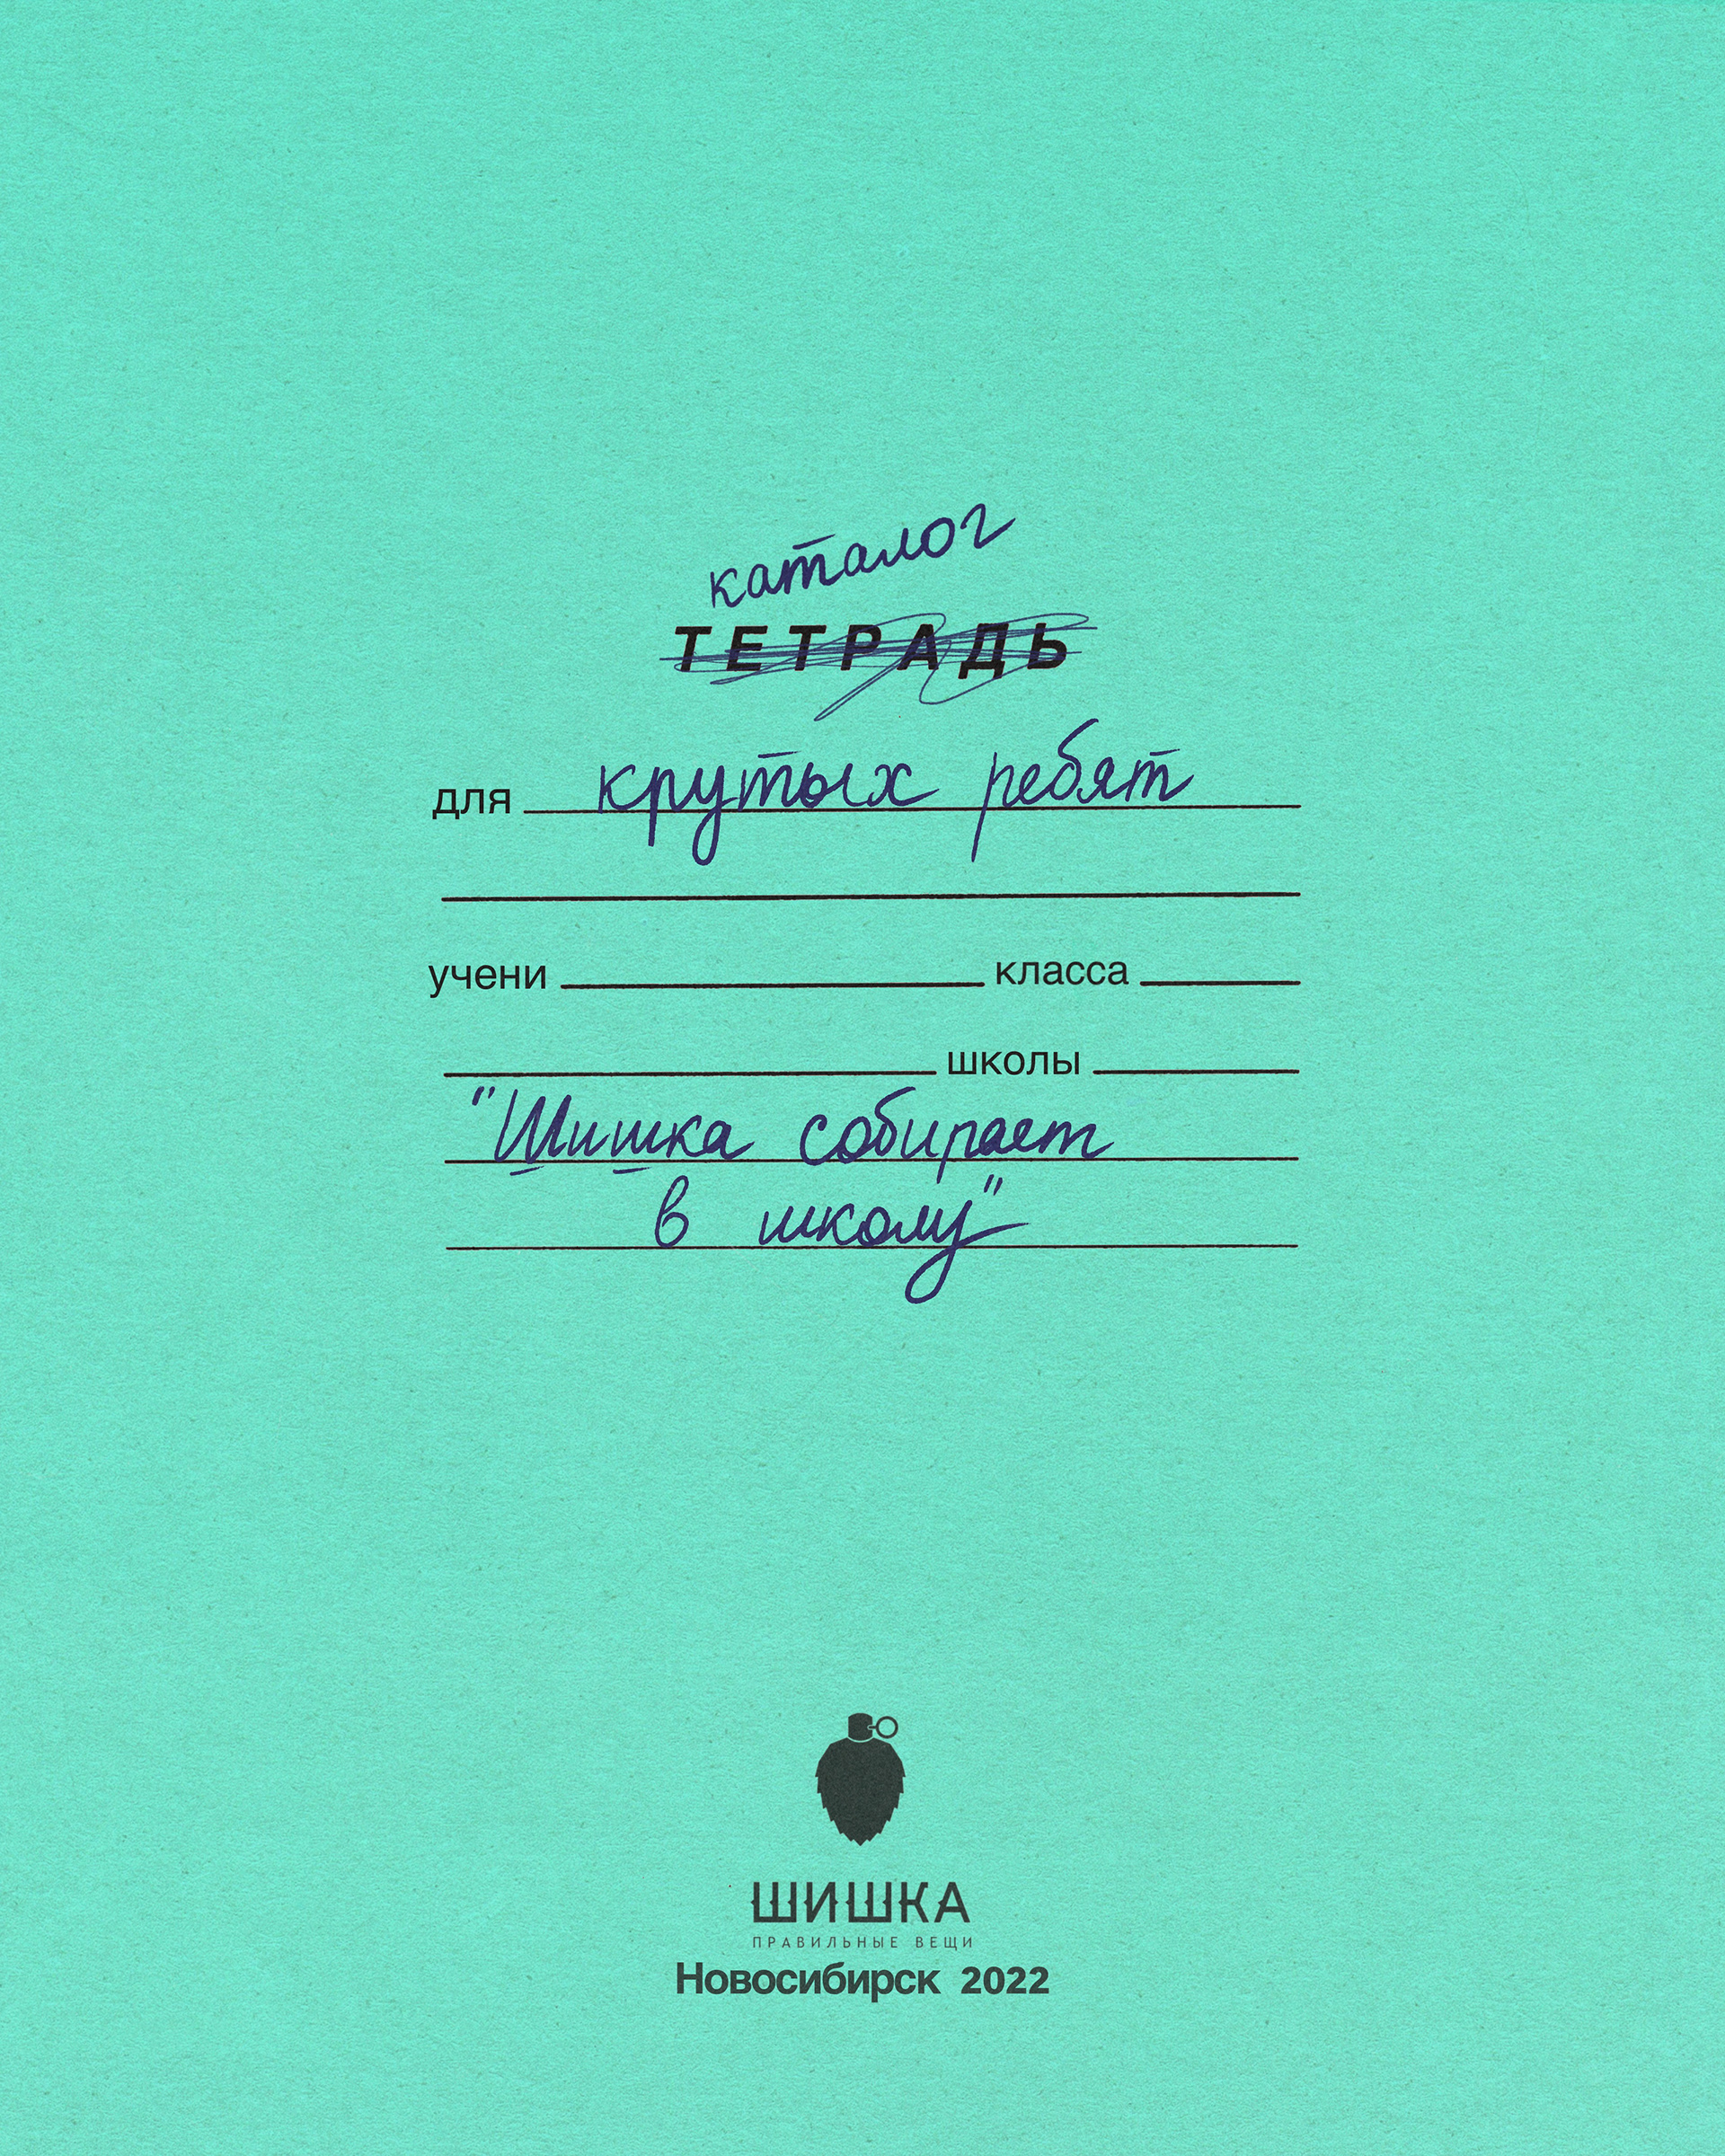 каталог
ТЕТРАДЬ
для крутых ребят
учени класса
школы
"Шишка собирает
в школу"
ШИШКА
ПРАВИЛЬНЫЕ ВЕЩИ
Новосибирск 2022